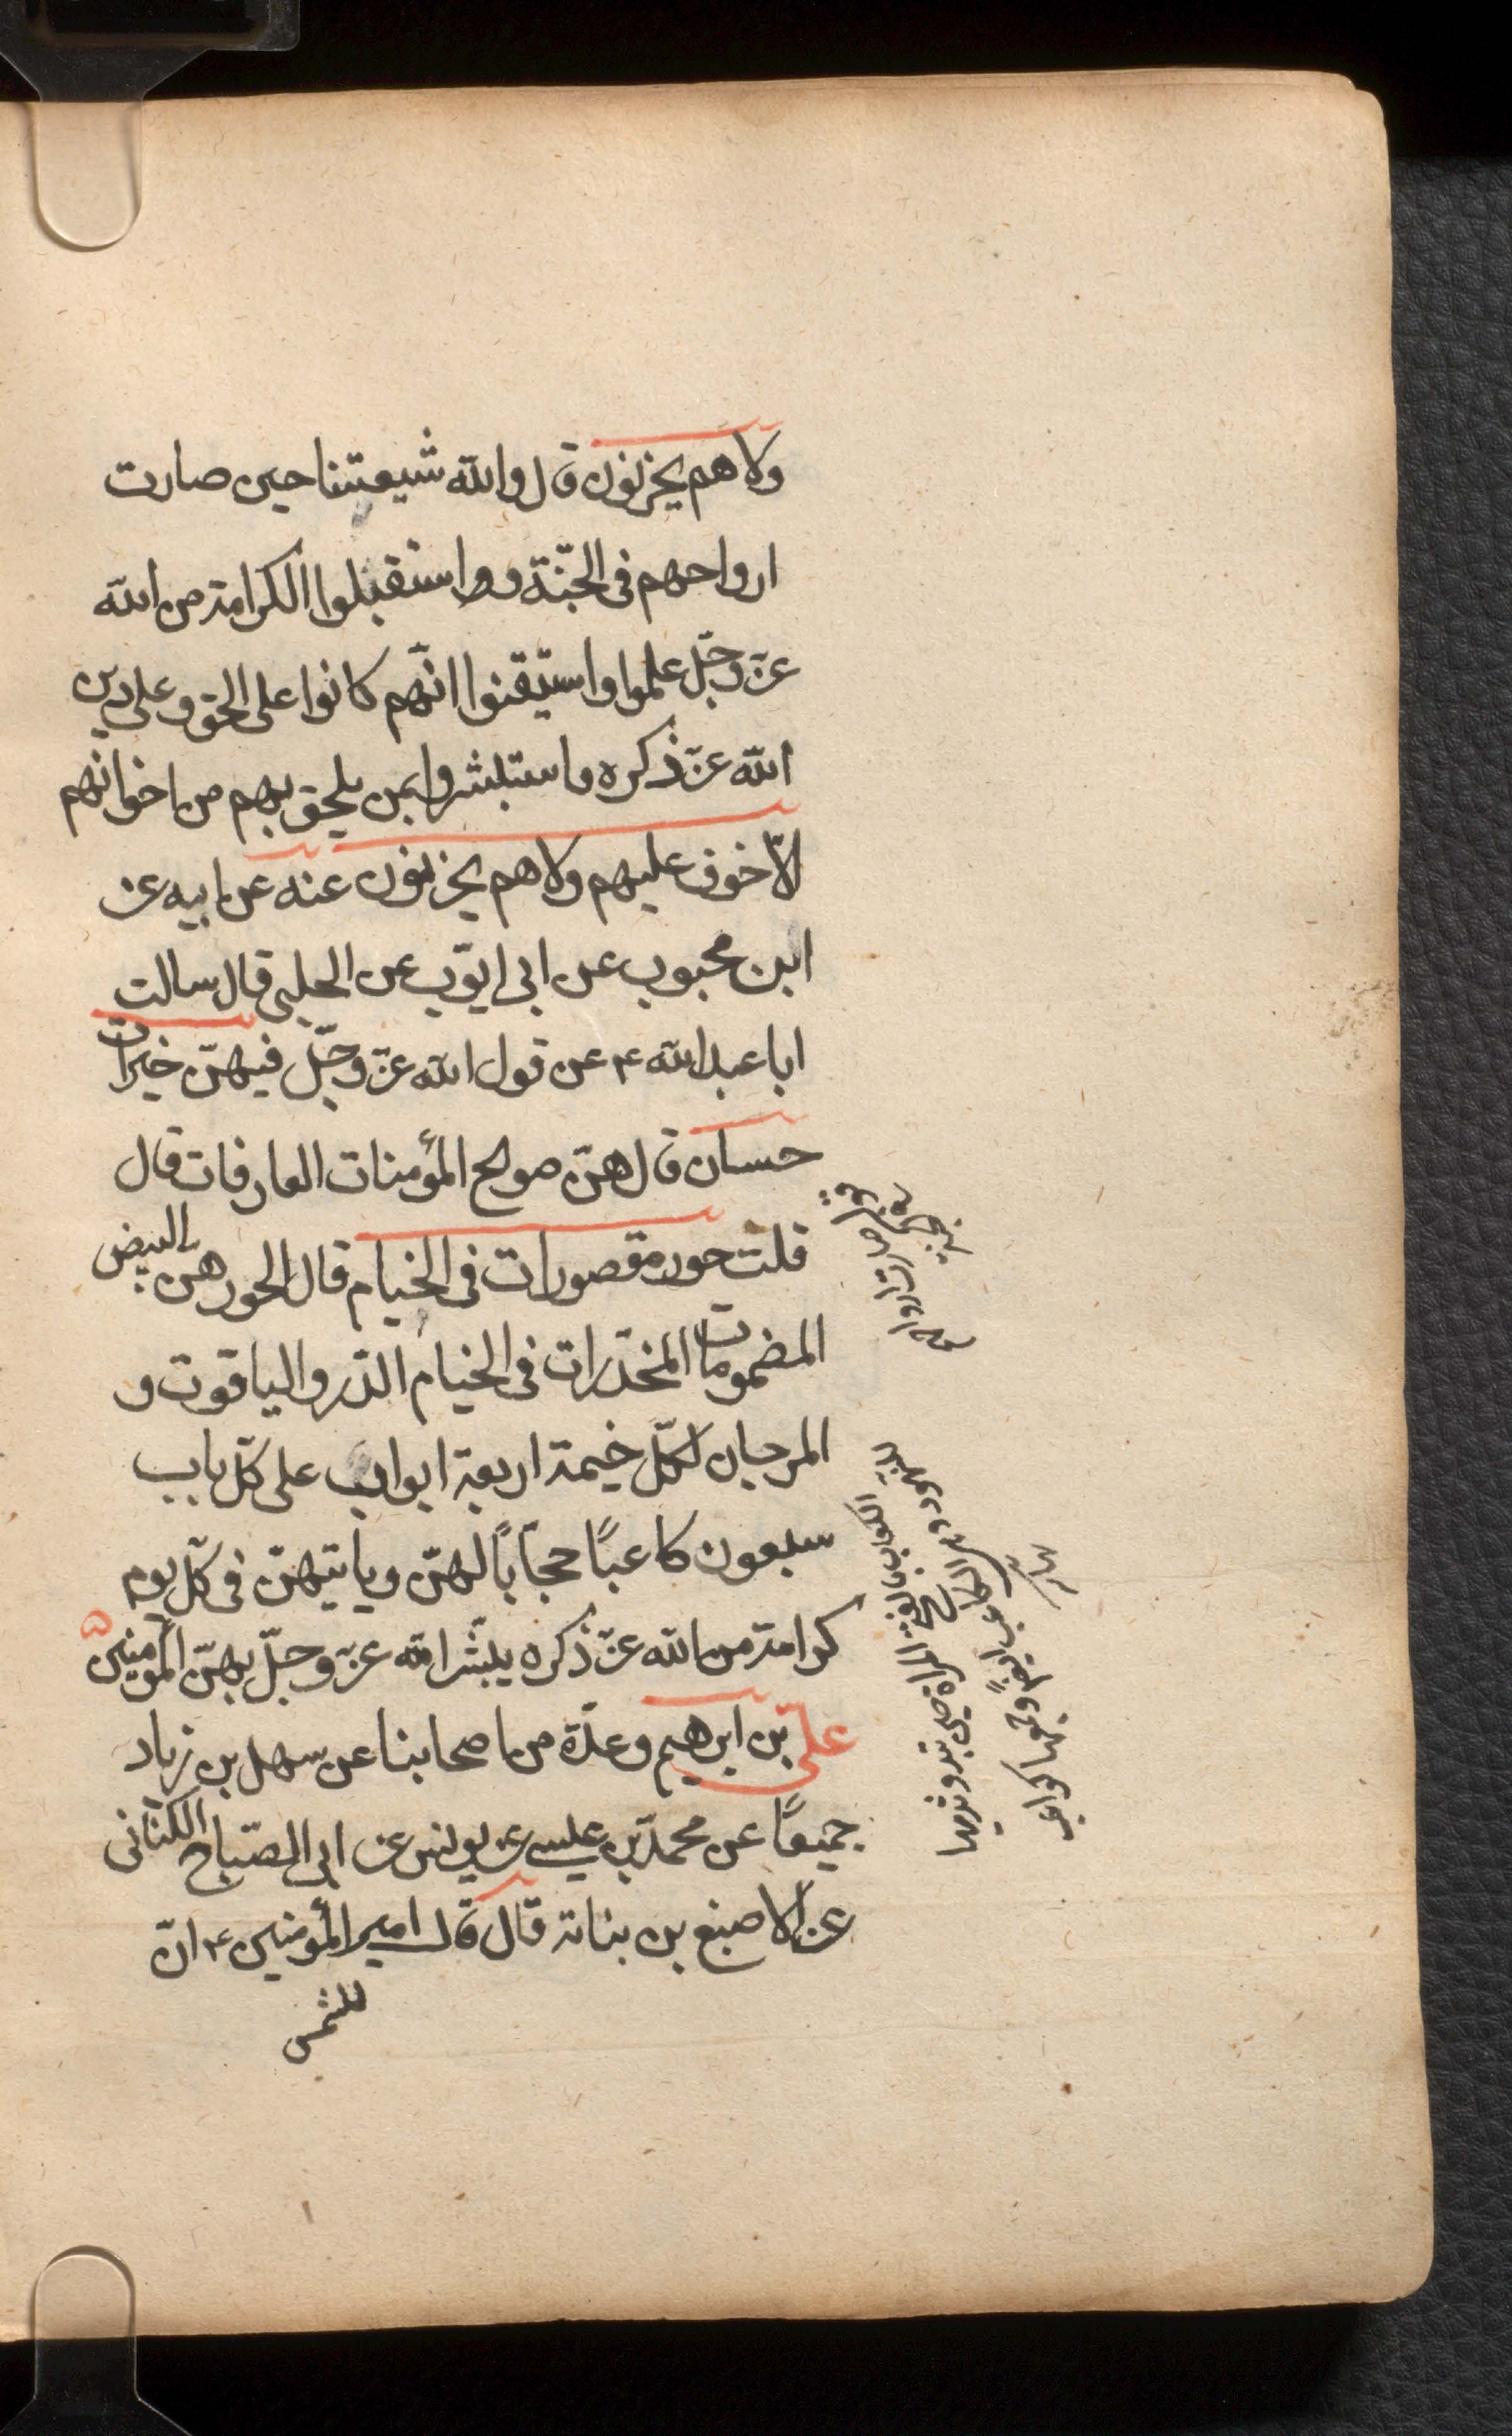 ولا هم يحزنون قال والله شيعتنا حين صارت
ارواحهم فى الجنّة و استقبلوا الكرامة من الله
عزّ وجلّ علموا واستيقنوا انّهم كانوا على الحق وعلى دين
الله عزّ ذكره واستبشروا بمن يلحق بهم من اخوانهم
الّا خوف عليهم ولا هم يحزنون عنه عن ابيه عن
ابن محبوب عن ابى ايّوب عن الحلبى قال سالت
ابا عبد الله ع عن قول الله عزّ وجلّ فيهنّ خيرات
حسان قال هنّ صوالح المؤمنات العارفات قال
قلت حور مقصورات فى الخيام قال الحور هن البيض
المضمومات المخدّرات فى الخيام الدّر والياقوت و
المرجان لكلّ خيمة اربعة ابواب على كلّ باب
سبعون كاعبًا حجّابًا لهنّ وياتيهنّ فى كلّ يوم
كرامة من الله عزّ ذكره يبشّر الله عزّ وجلّ بهنّ المؤمنين
علىّ بن ابرهيم وعدّة من اصحابنا عن سهل بن زياد
جميعًا عن محمدّ بن عيسى عن يونس عن ابى الصّباح الكنانى
عن الاصبغ بن بناتة قال قال امير المؤمنين ع انّ
للشمس
صارت ارواحهم
الكواب بالفتح المراة حين تبدو ثديها
الكاعب ايضًا وجمعها كواعب